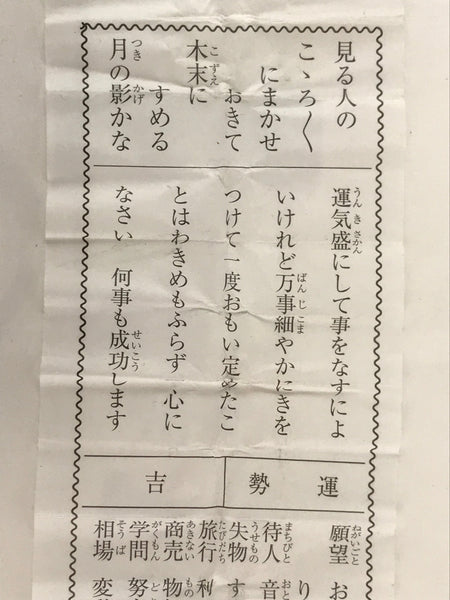 見る人の
こゝろ〳〵
にまかせ
おきて
木末に
すめる
月の影かな
運気盛にして事をなすによ
いけれど万事細やかにきを
つけて一度おもい定めたこ
とはわきめもふらず一心に
なさい　何事も成功します
運勢
吉
願望　お
り
待人　音
失物　す
旅行　利
商売　物
学問　努
相場　変